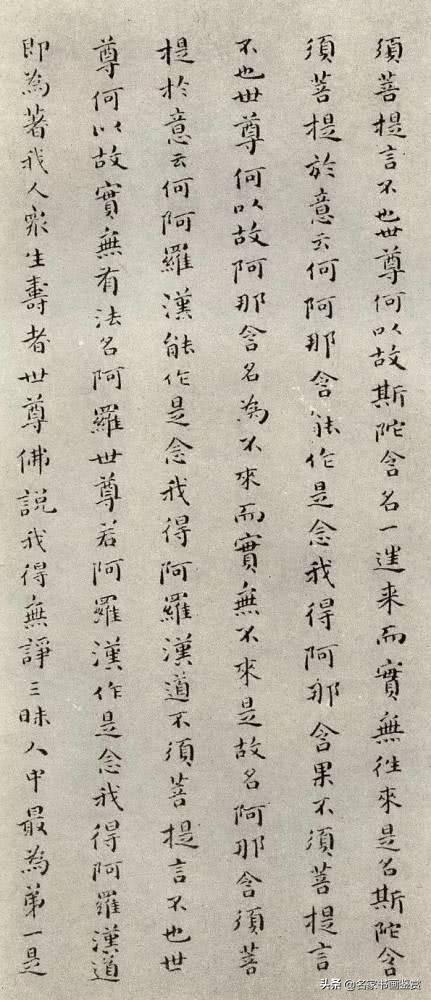 須菩提言不也世尊何以故斯陀含名一往来而實無往來是名斯陀含
須菩提於意云何阿那含能作是念我得阿那含果不須菩提言
不也世尊何以故阿那含名為不來而實無不來是故名阿那含須菩
提於意云何阿羅漢能作是念我得阿羅漢道不須菩提言不也世
尊何以故實無有法名阿羅世尊若阿羅漢作是念我得阿羅漢道
即為著我人眾生壽者世尊佛説我得無諍三昧人中最為第一是
头条 @名家书画鉴赏